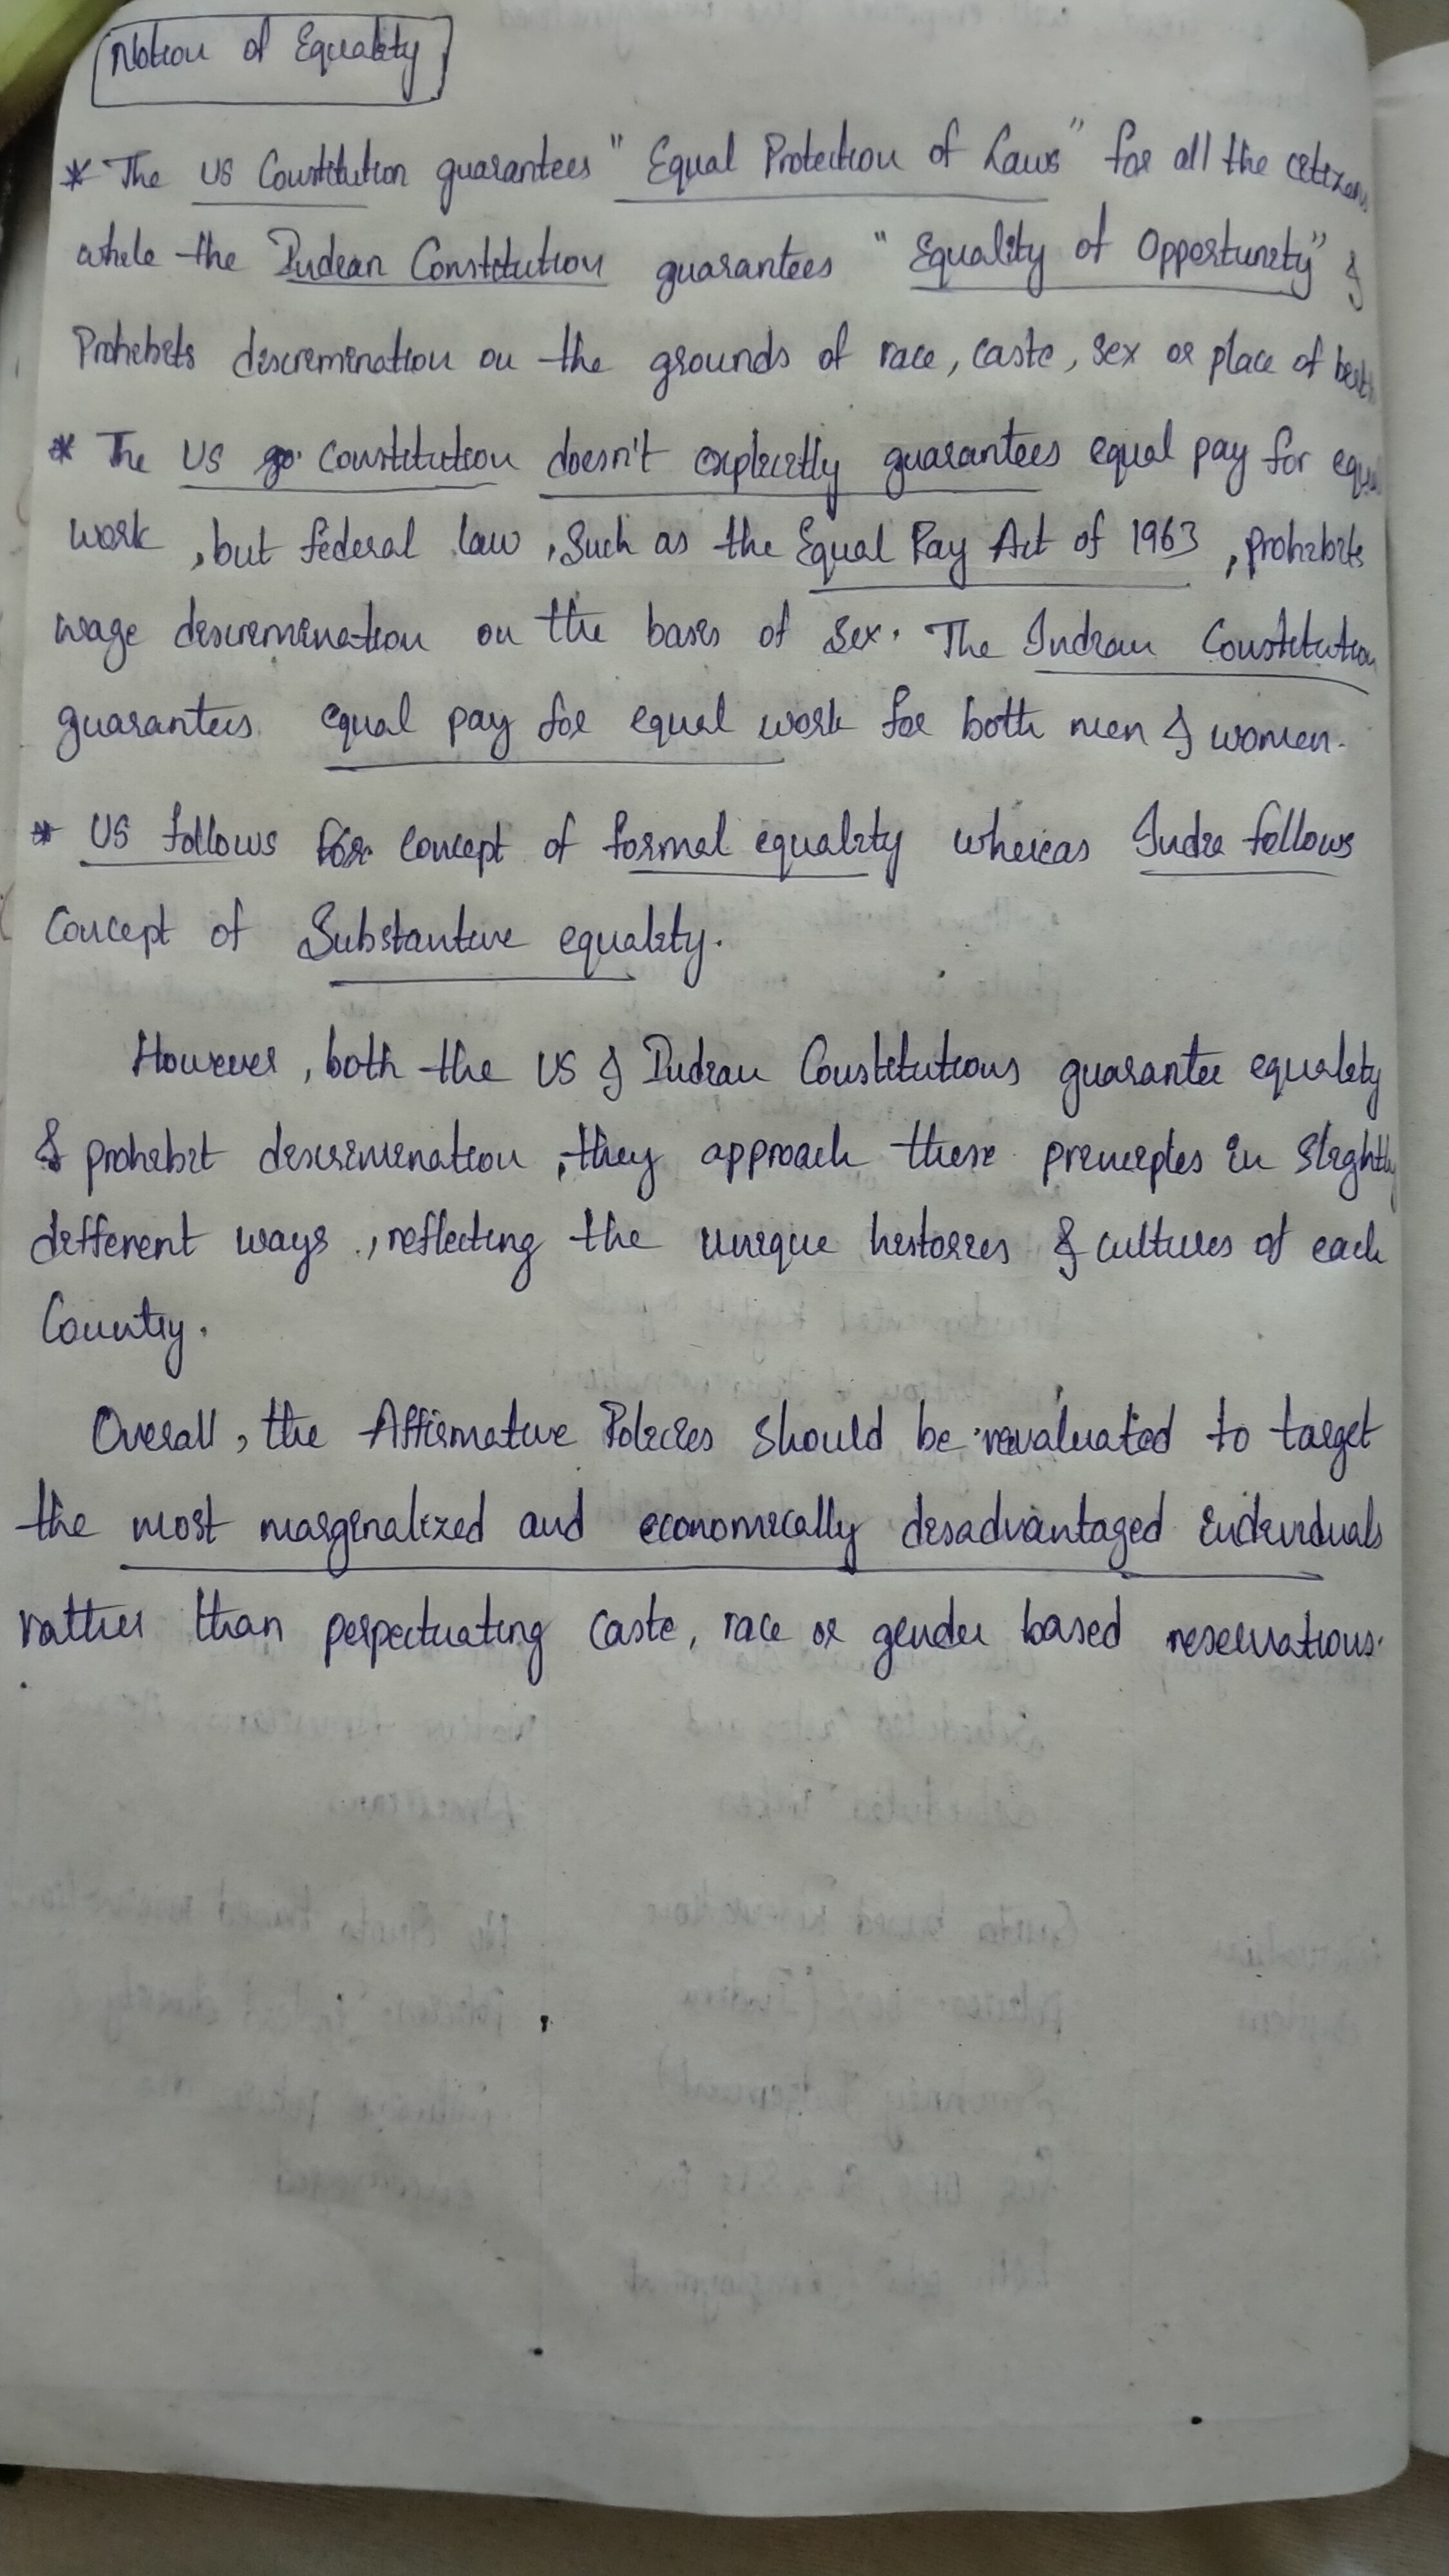 Notion of Equality
* The US Constitution guarantees "Equal Protection of Laws" for all the citizens
while the Indian Constitution guarantees "Equality of Opportunity" &
Prohibits discrimination on the grounds of race, caste, sex or place of birth
* The US Constitution doesn't explicitly guarantees equal pay for equal
work, but federal law, such as the Equal Pay Act of 1963, prohibits
wage discrimination on the basis of sex. The Indian Constitution
guarantees equal pay for equal work for both men & women.
* US follows concept of formal equality whereas India follows
concept of Substantive equality.
However, both the US & Indian Constitutions guarantee equality
& prohibit discrimination, they approach these principles in slightly
different ways, reflecting the unique histories & cultures of each
Country.
Overall, the Affirmative Policies should be revaluated to target
the most marginalized and economically disadvantaged individuals
rather than perpectuating caste, race or gender based reservations.